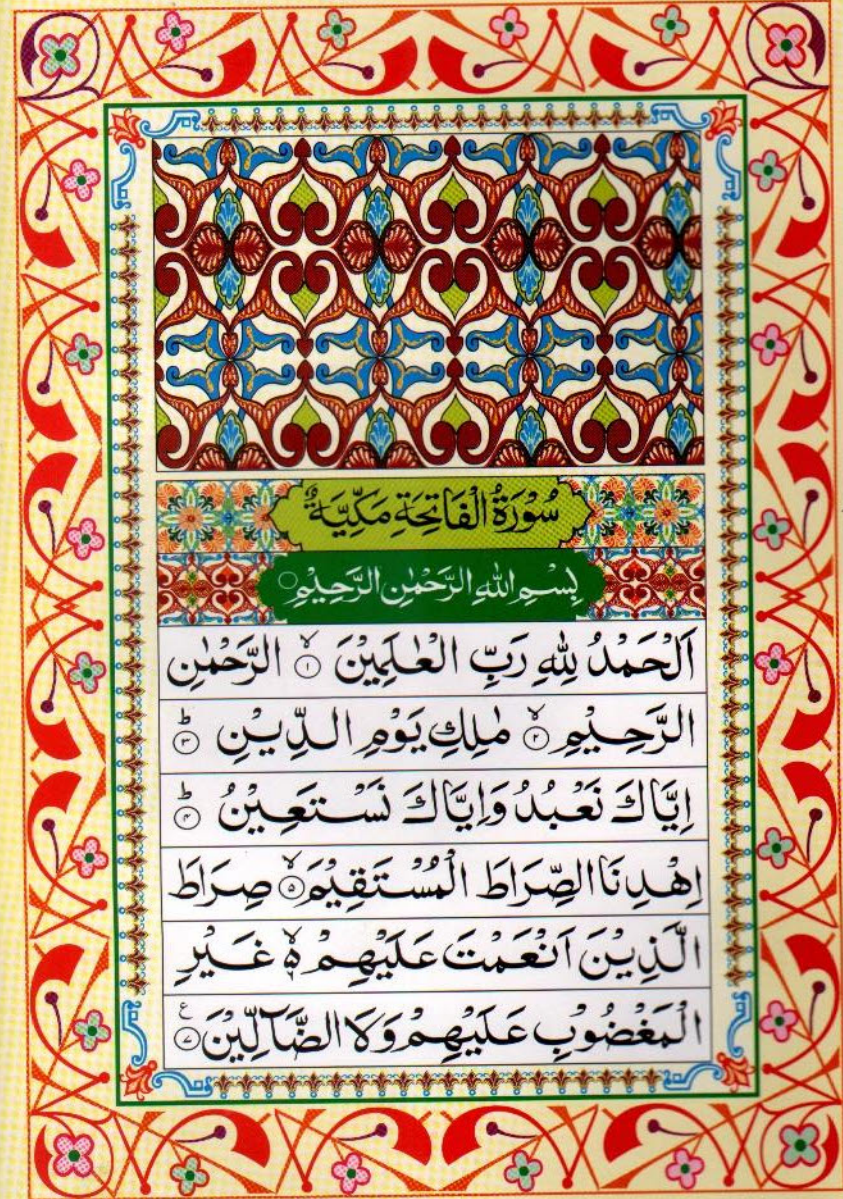 سُوْرَةُ الْفَاتِحَةِ مَكِّيَّةٌ
بِسْمِ اللّٰهِ الرَّحْمٰنِ الرَّحِيْمِ ○
اَلْحَمْدُ لِلّٰهِ رَبِّ الْعٰلَمِيْنَ ۙ﴿۱﴾ الرَّحْمٰنِ
الرَّحِيْمِ ۙ﴿۲﴾ مٰلِكِ يَوْمِ الدِّيْنِ ؕ﴿۳﴾
اِيَّاكَ نَعْبُدُ وَاِيَّاكَ نَسْتَعِيْنُ ؕ﴿۴﴾
اِهْدِنَا الصِّرَاطَ الْمُسْتَقِيْمَ ۙ﴿۵﴾ صِرَاطَ
الَّذِيْنَ اَنْعَمْتَ عَلَيْهِمْ ۙ۬ۦ غَيْرِ
الْمَغْضُوْبِ عَلَيْهِمْ وَلَا الضَّآلِّيْنَ ﴿۷﴾ ع